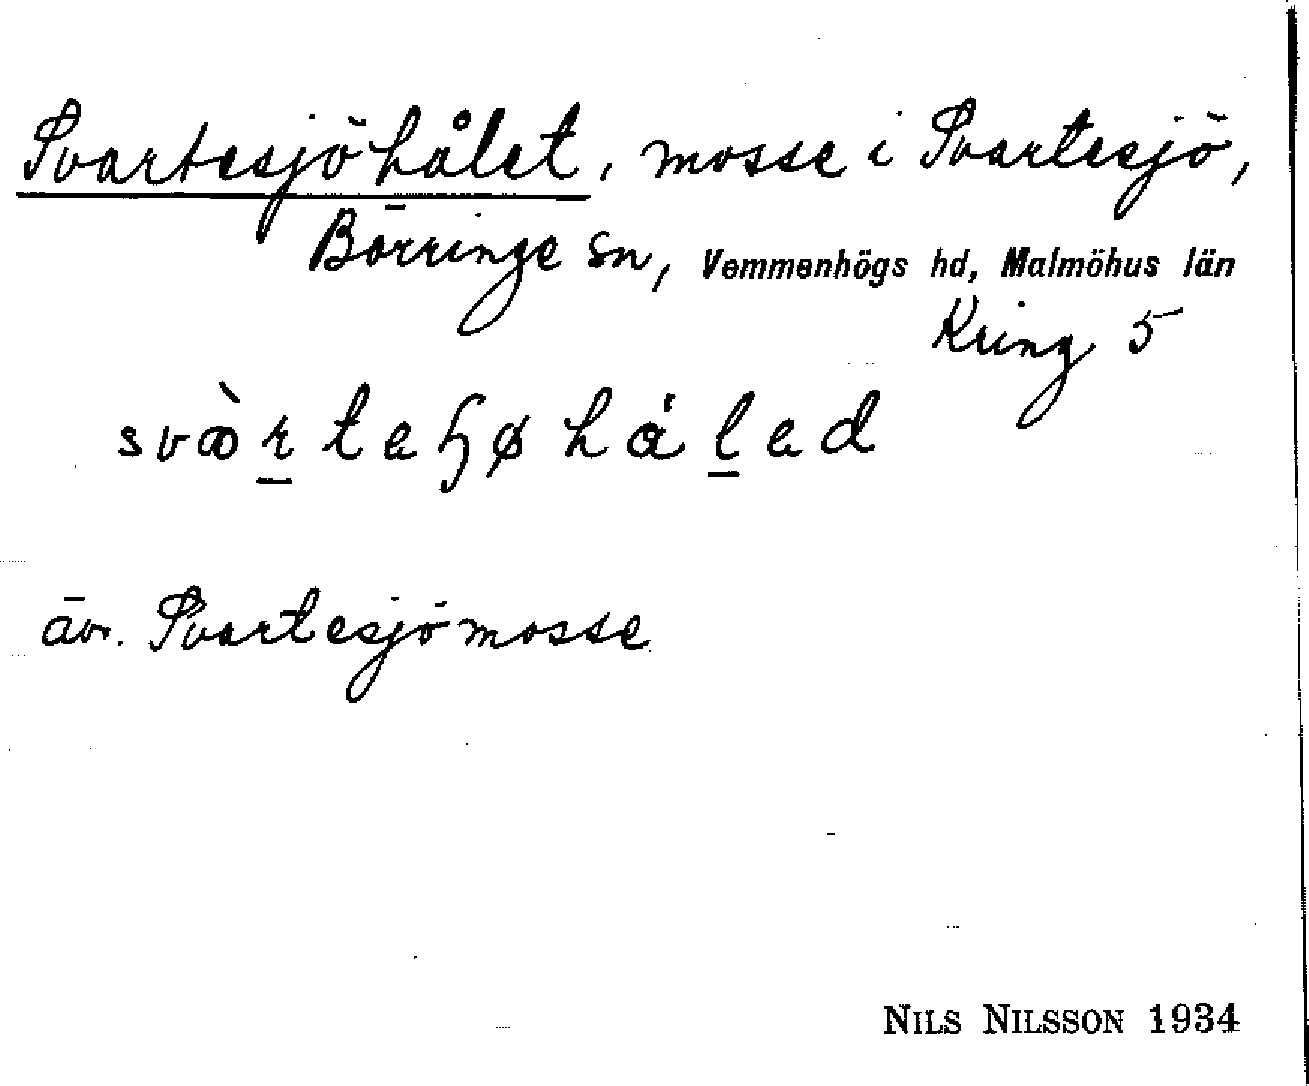 Svartesjöhålet, mosse i Svartesjö,
Börringe sn, Vemmenhögs hd, Malmöhus län
Kring 5
svàrteɧøhålad
äv. Svartesjömosse
NILS NILSSON 1934